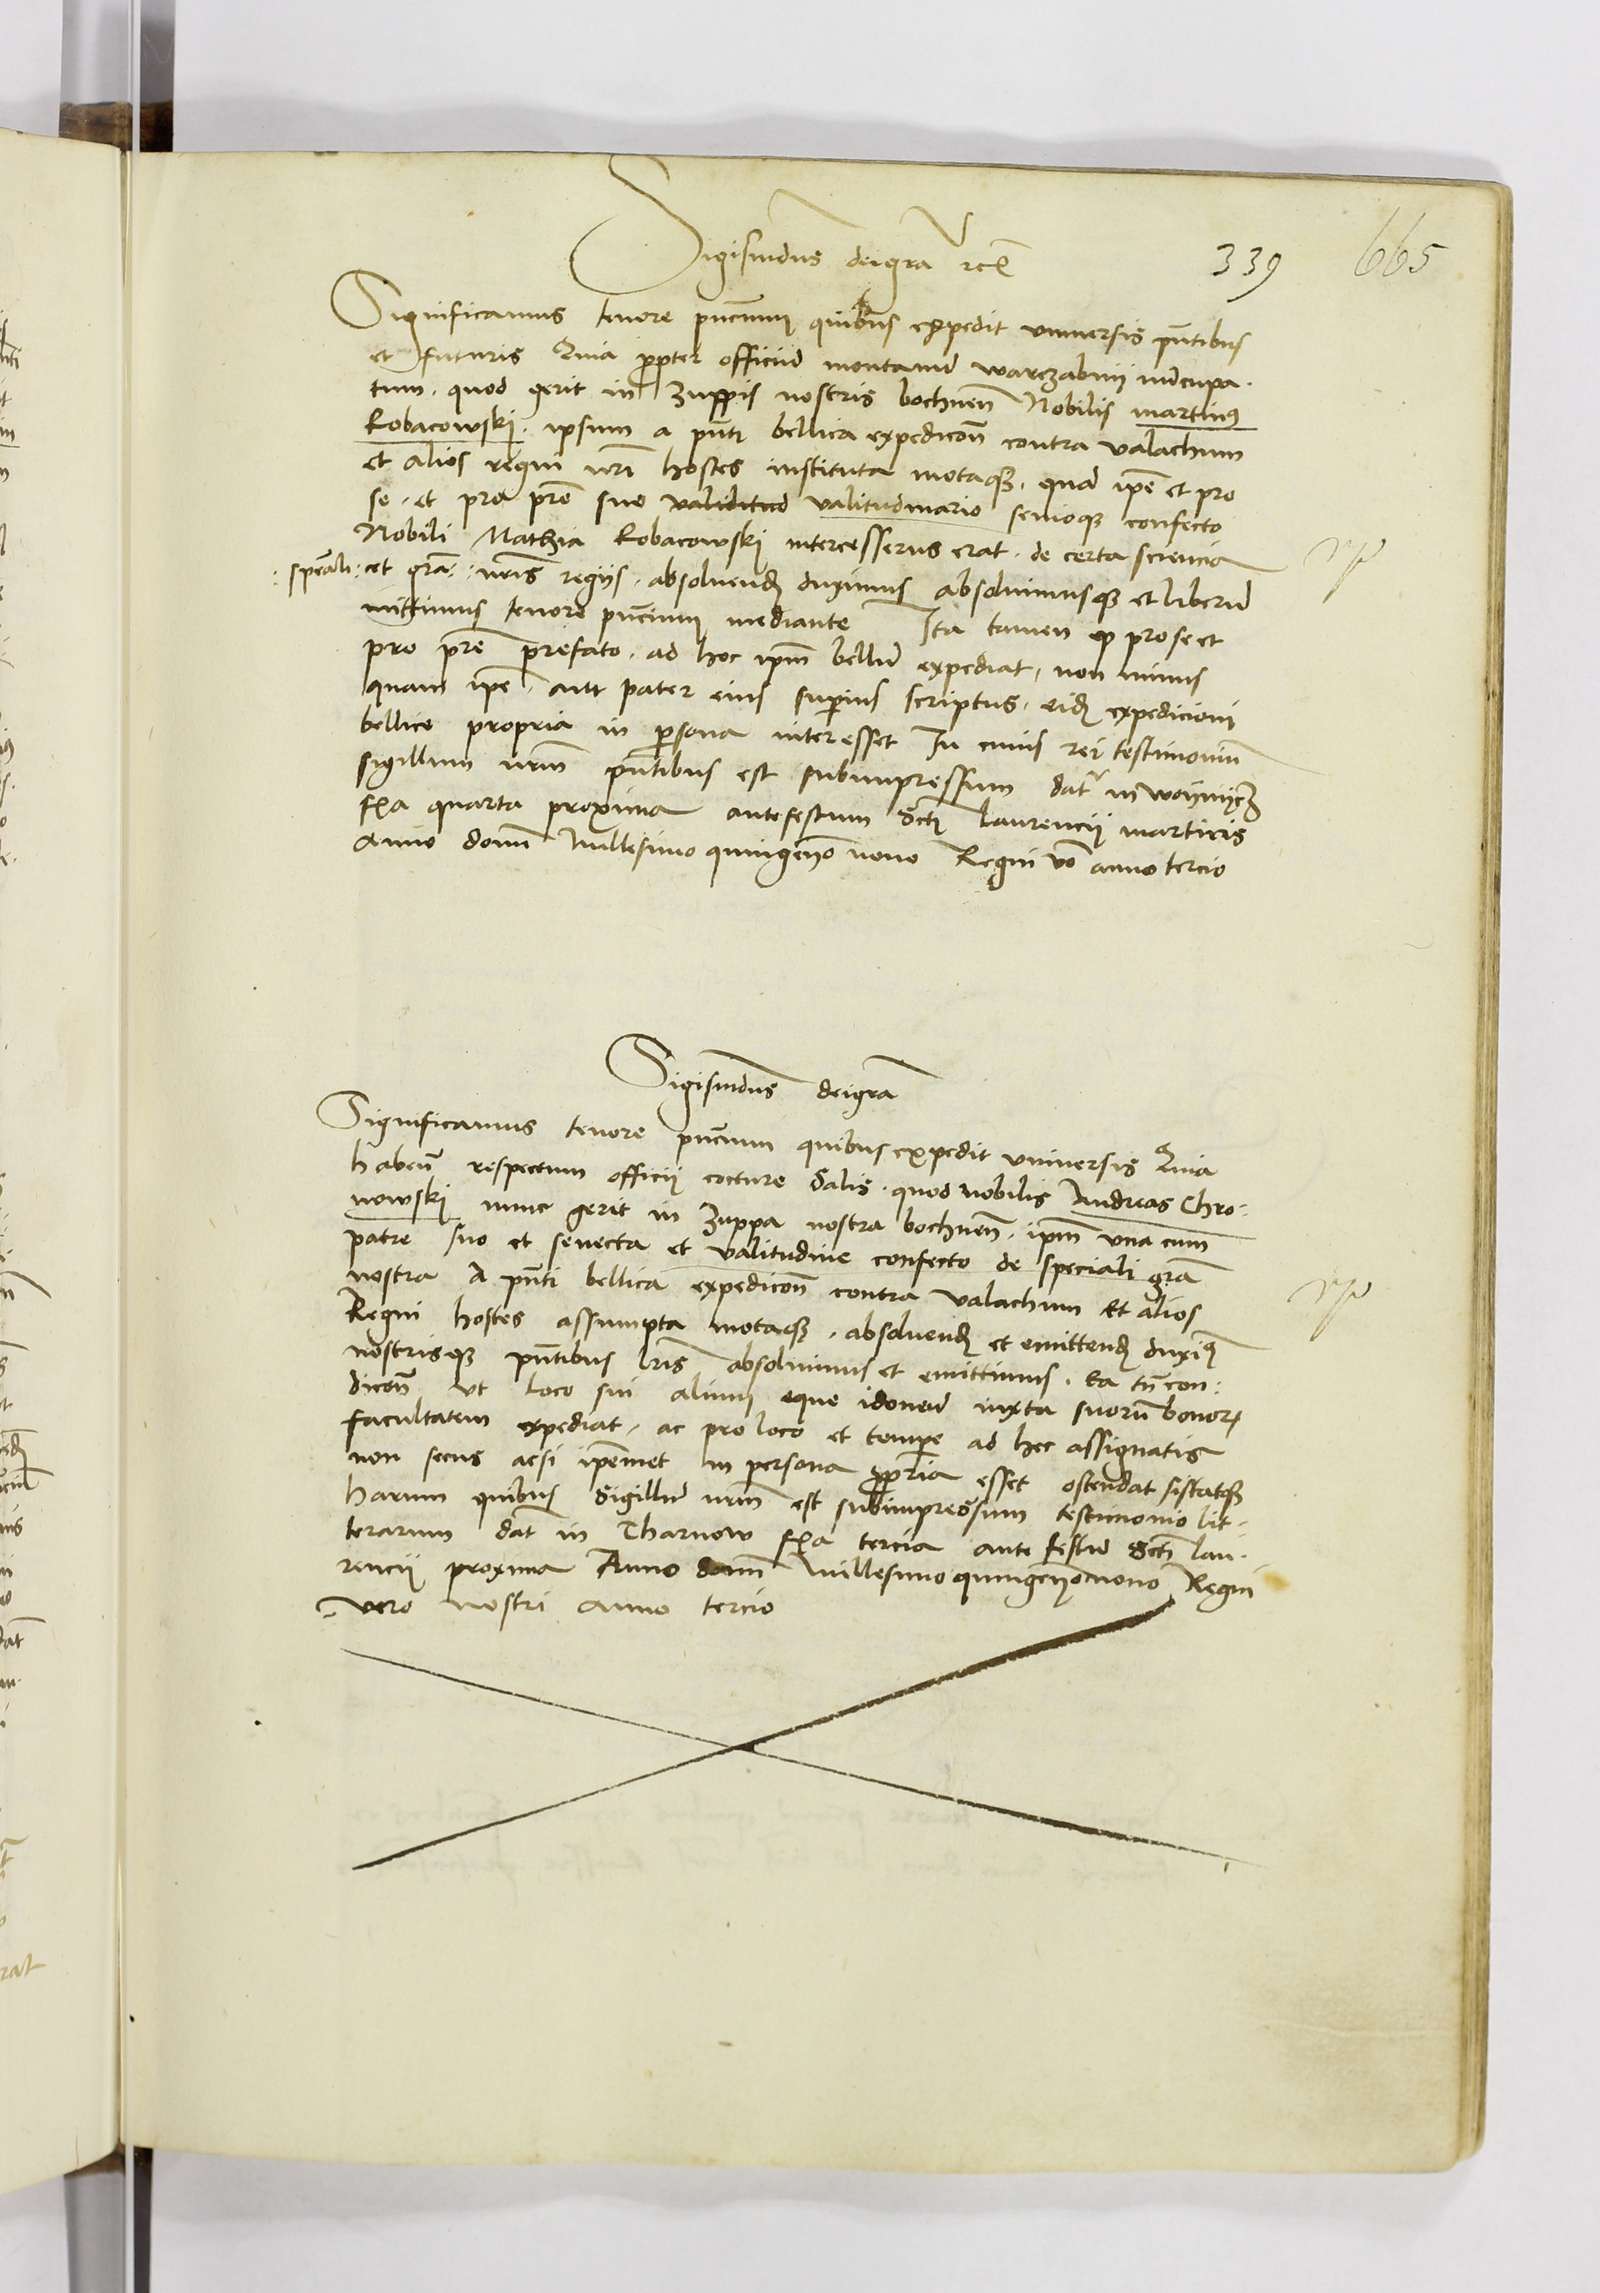 Sigismdus deigra rcz
339
665
Significamus tenore pncium quibus expedit universis pntibus
et futuris Quia propter officiu montanu warczabnij nucupa.
tum. quod gerit in Zuppis nostris bochnen Nobilis martinus
Robacowski. ipsum a pnti bellica expedicon contra valachum
et alios regni nri hostes instituta motaq. qua ipe et pro
se. et pro pre suo validitud valitudinario senioq confecto
Nobili Mathia Robacowski intercesserus erat. de certa sciencia
:speali: et gra: nris regijs. absoluend duximus absoluimusq et liberu
mittimus tenore pncium mediante Ita tamen q pro se et
pro pre prefato. ad hoc ipm bellu expediat, non minus
quam ipe. aut pater eius superius scriptus. eid expedicioni
bellice propria in persona interesset In cuius rei testimoniu
sigillum nrm pntibus est subimpressum dat in woynycz
fra quarta proxima ante festum Scti laurencij martiris
anno domi Millesimo quingeno nono Regni vo anno tercio
Sigismdus deigra
Significamus tenore pncium quibus expedit universis Quia
haben respectum officij cocture Salis. quod nobilis Andreas Chro:
nowski nunc gerit in Zuppa nostra bochnen. ipm una cum
patre suo et senecta et valitudine confecto de speciali gra
nostra A pnti bellica expedicon contra valachum Et alios
Regni hostes assumpta motaq. absoluend et emittend duxim
nostrisq pntibus lris absoluimus et emittimus. Ea tn con:
dicon ut loco sui alium eque idoneu iuxta suoru bonor
facultatem expediat. ac pro loco et tempe ad hec assignatis
non secus acsi ipemet in persona ppria esset ostendat sistatq
harum quibus Sigillu nrm est subimpressum testimonio lit:
terarum dat in Tharnow fra tercia ante festu Scti lau:
rencij proxima Anno domi Millesimo quingeno nono Regni
vero nostri anno tercio